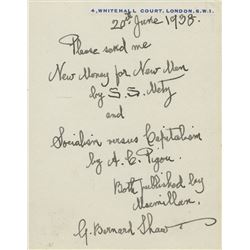 4, WHITEHALL COURT, LONDON, S.W.1.
20th June 1938.
Please send me
New Money for New Men
by S. S. Metz
and
Socialism versus Capitalism
by A. C. Pigou.
Both published by
Macmillan.
G. Bernard Shaw